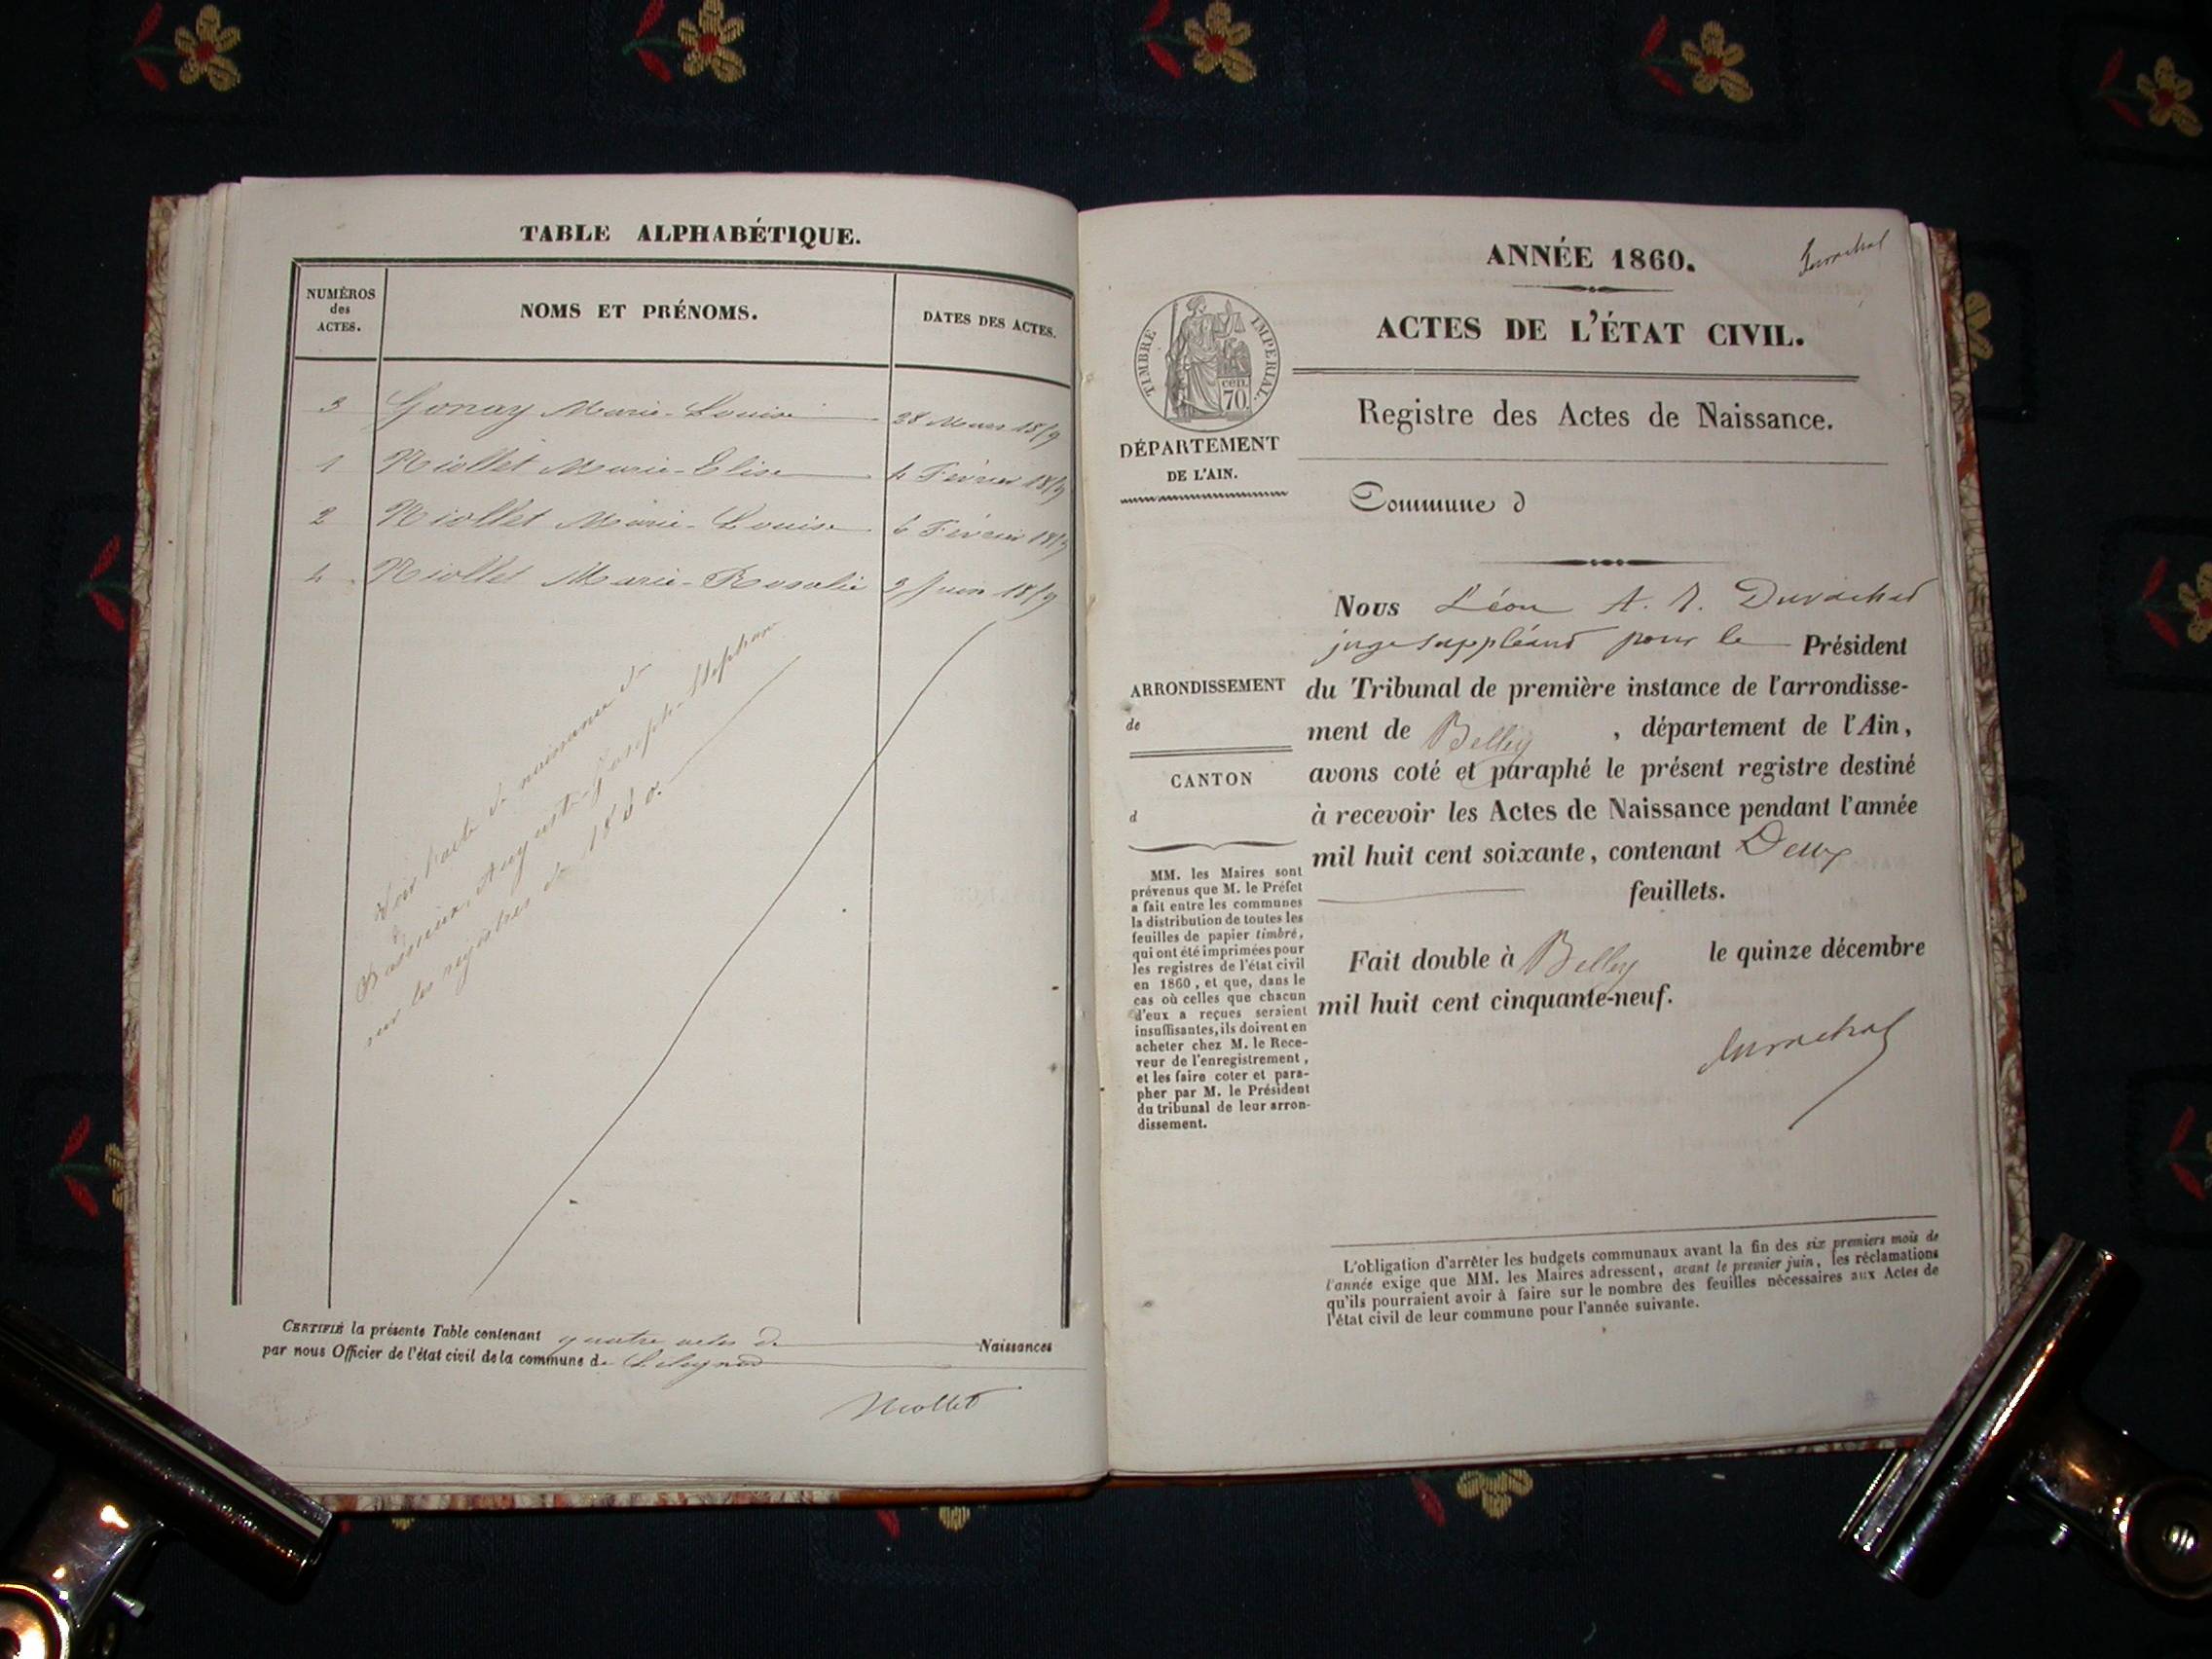 TABLE ALPHABÉTIQUE.
NUMÉROS
des
ACTES.
NOMS ET PRÉNOMS.
DATES DES ACTES.
3 Gonay Marie-Louise 28 Mars 1859
1 Niollet Marie-Elise 4 Février 1859
2 Niollet Marie-Louise 6 Février 1859
4 Niollet Marie-Rosalie Juin 1859
Voir l'acte de naissance de
Auguste-Joseph-Stéphane
sur les registres de 1880.
CERTIFIÉ la présente Table contenant quatre actes de Naissances
par nous Officier de l'état civil de la commune de
Niollet
ANNÉE 1860.
ACTES DE L'ÉTAT CIVIL.
TIMBRE IMPERIAL.
cen.
70
Registre des Actes de Naissance.
DÉPARTEMENT
DE L'AIN.
Commune d
Nous Léon A.
juge suppléant pour le Président
ARRONDISSEMENT
de
du Tribunal de première instance de l'arrondisse-
ment de Belley, département de l'Ain,
CANTON
d
avons coté et paraphé le présent registre destiné
à recevoir les Actes de Naissance pendant l'année
mil huit cent soixante, contenant Deux
feuillets.
MM. les Maires sont
prévenus que M. le Préfet
a fait entre les communes
la distribution de toutes les
feuilles de papier timbré,
qui ont été imprimées pour
les registres de l'état civil
en 1860, et que, dans le
cas où celles que chacun
d'eux a reçues seraient
insuffisantes, ils doivent en
acheter chez M. le Rece-
veur de l'enregistrement,
et les faire coter et para-
pher par M. le Président
du tribunal de leur arron-
dissement.
Fait double à Belley le quinze décembre
mil huit cent cinquante-neuf.
L'obligation d'arrêter les budgets communaux avant la fin des six premiers mois de
l'année exige que MM. les Maires adressent, avant le premier juin, les réclamations
qu'ils pourraient avoir à faire sur le nombre des feuilles nécessaires aux Actes de
l'état civil de leur commune pour l'année suivante.